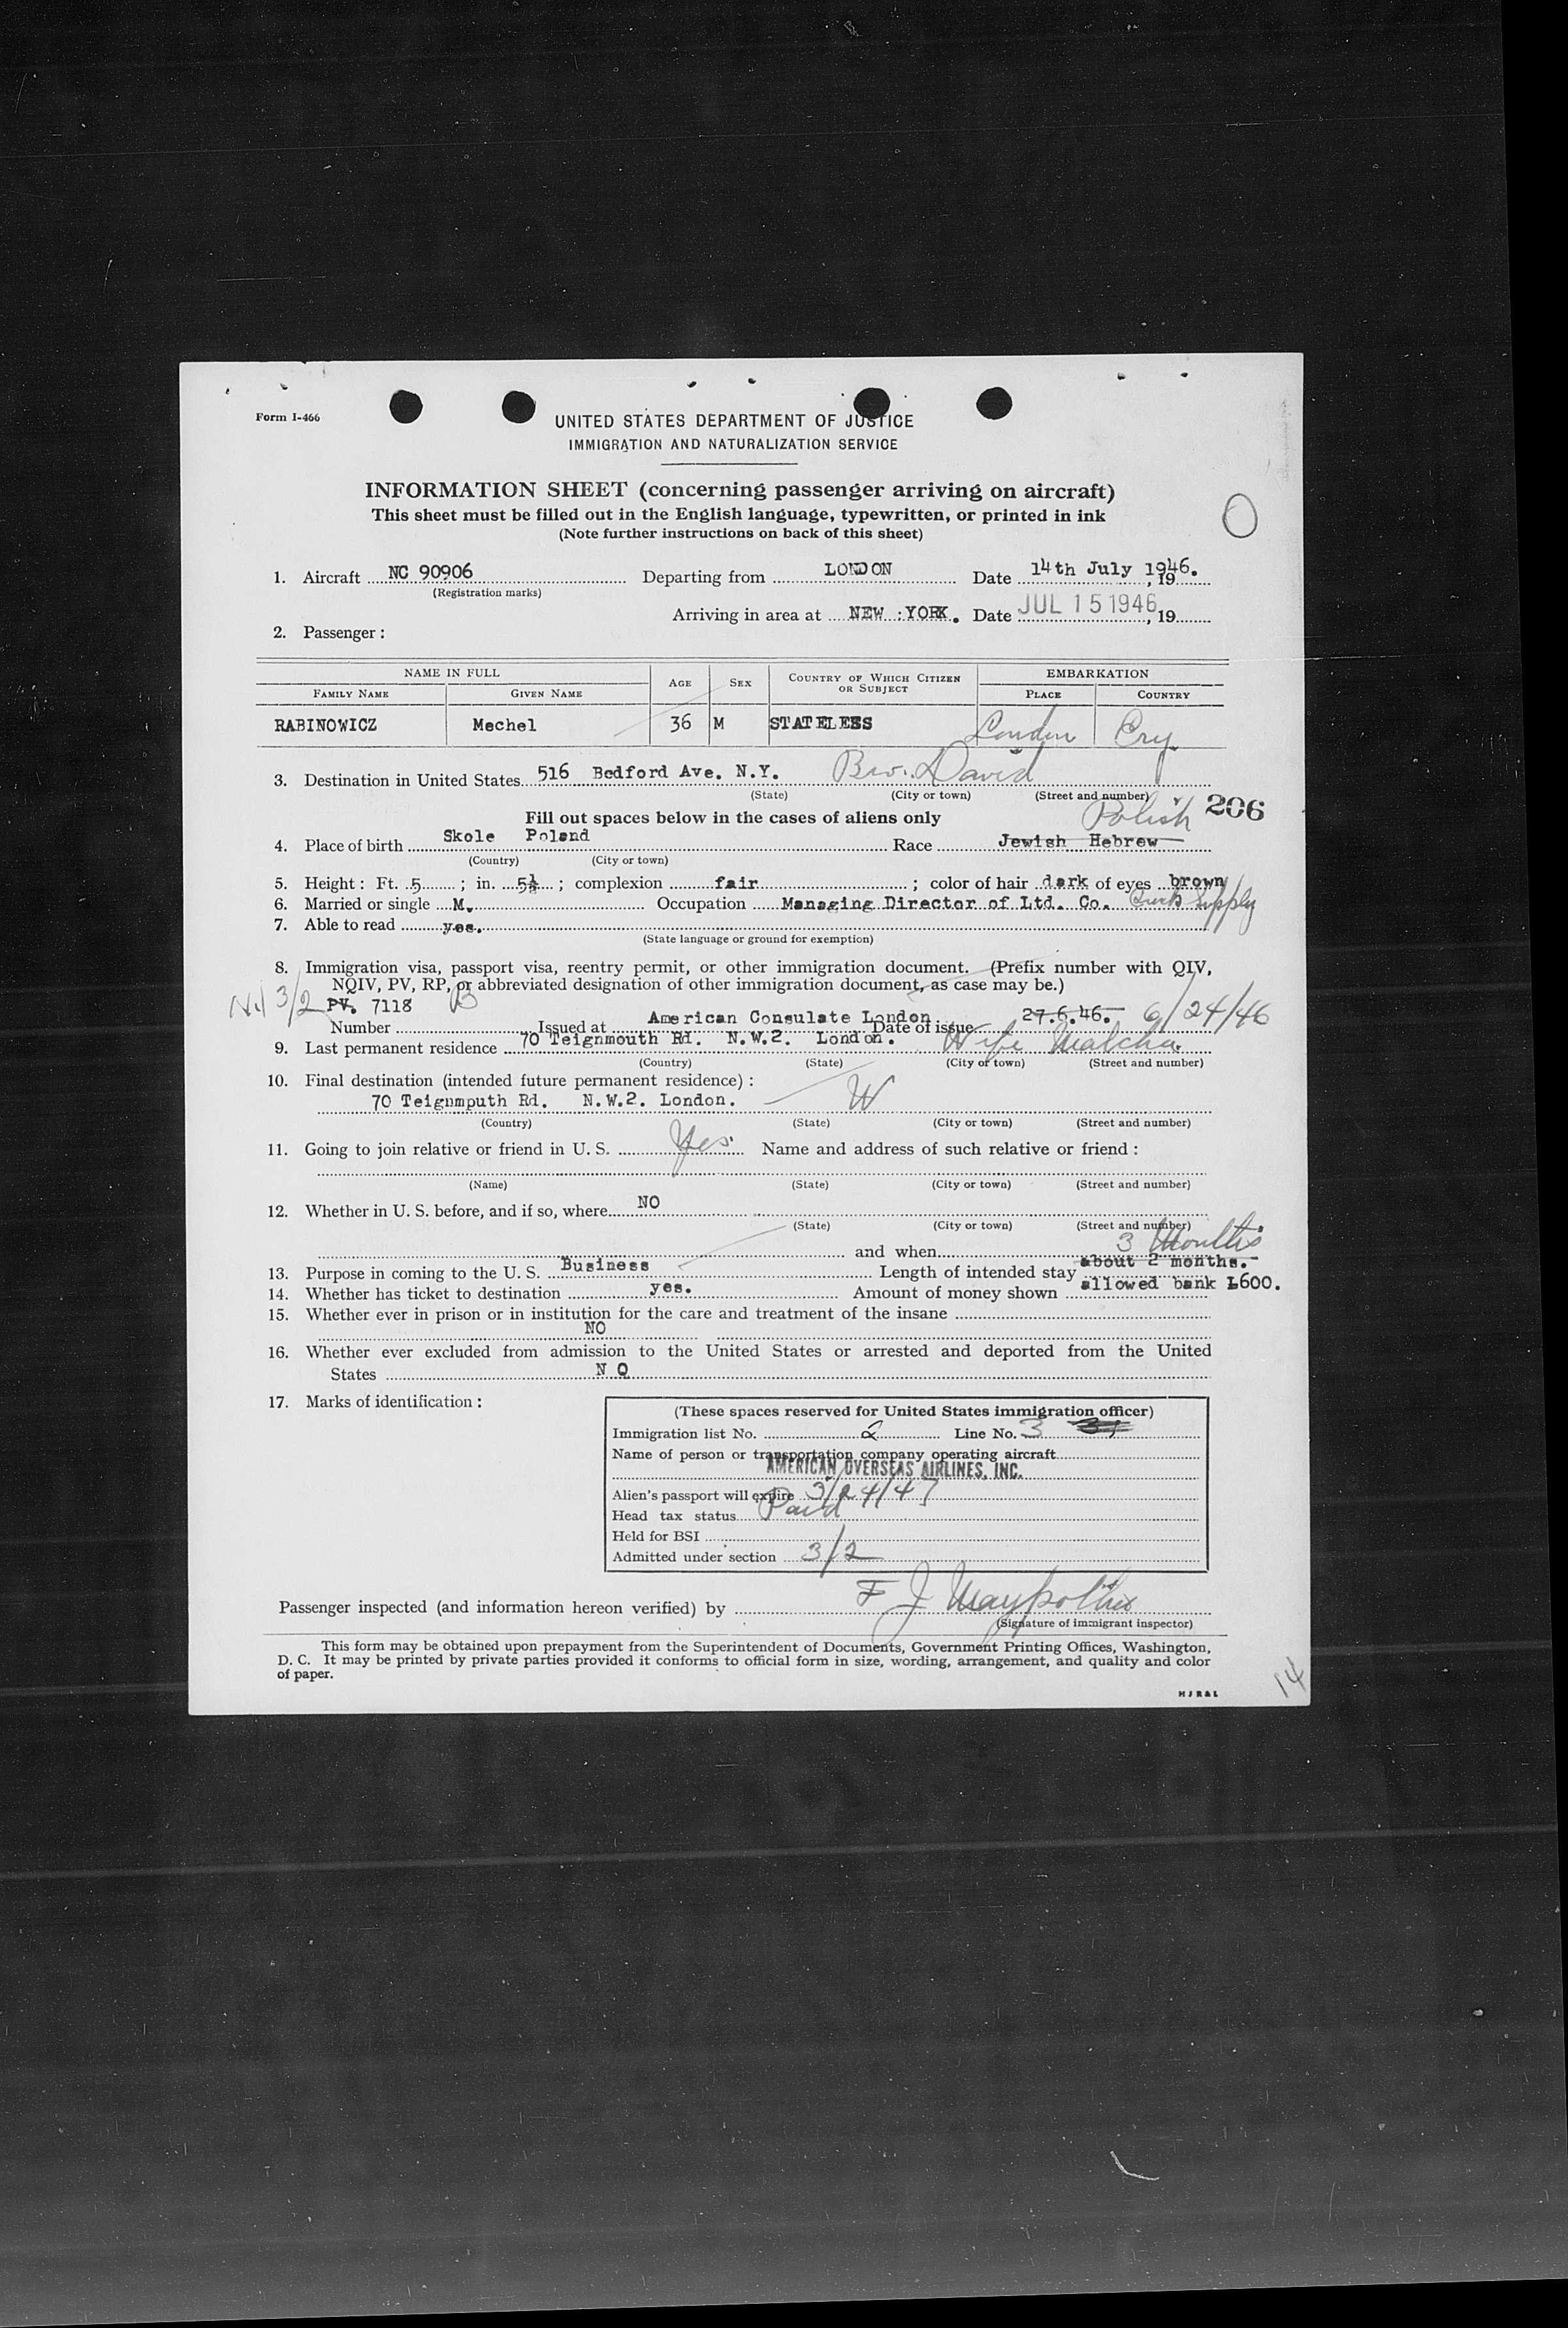 Form I-466
UNITED STATES DEPARTMENT OF JUSTICE
IMMIGRATION AND NATURALIZATION SERVICE
INFORMATION SHEET (concerning passenger arriving on aircraft)
This sheet must be filled out in the English language, typewritten, or printed in ink
(Note further instructions on back of this sheet)
1. Aircraft NC 90906 Departing from LONDON Date 14th July 1946. , 19
(Registration marks)
Arriving in area at NEW :YORK. Date JUL 15 1946, 19
2. Passenger :
NAME IN FULL AGE SEX COUNTRY OF WHICH CITIZEN OR SUBJECT EMBARKATION
FAMILY NAME GIVEN NAME PLACE COUNTRY
RABINOWICZ Mechel 36 M STATELESS London
3. Destination in United States 516 Bedford Ave. N.Y. Bro. David
(State) (City or town) (Street and number)
Fill out spaces below in the cases of aliens only Polish 206
4. Place of birth Skole Poland Race Jewish Hebrew
(Country) (City or town)
5. Height : Ft. 5 ; in. 5½ ; complexion fair ; color of hair dark of eyes brown
6. Married or single M. Occupation Managing Director of Ltd. Co. Supply
7. Able to read yes.
(State language or ground for exemption)
8. Immigration visa, passport visa, reentry permit, or other immigration document. (Prefix number with QIV,
NQIV, PV, RP, or abbreviated designation of other immigration document, as case may be.)
3/2 PV. 7118 B
Number Issued at American Consulate London Date of issue 27.6.46. 6/24/46
9. Last permanent residence 70 Teignmouth Rd. N.W.2. London. Wife Malcha
(Country) (State) (City or town) (Street and number)
10. Final destination (intended future permanent residence) :
70 Teignmputh Rd. N.W.2. London. W
(Country) (State) (City or town) (Street and number)
11. Going to join relative or friend in U. S. Yes Name and address of such relative or friend :
(Name) (State) (City or town) (Street and number)
12. Whether in U. S. before, and if so, where NO
(State) (City or town) (Street and number)
and when 3 Months
13. Purpose in coming to the U. S. Business Length of intended stay about 2 months.
14. Whether has ticket to destination yes. Amount of money shown allowed bank £600.
15. Whether ever in prison or in institution for the care and treatment of the insane
NO
16. Whether ever excluded from admission to the United States or arrested and deported from the United
States N O
17. Marks of identification :
(These spaces reserved for United States immigration officer)
Immigration list No. 2 Line No. 3
Name of person or transportation company operating aircraft
AMERICAN OVERSEAS AIRLINES, INC.
Alien's passport will expire 3/24/47
Head tax status Paid
Held for BSI
Admitted under section 3/2
Passenger inspected (and information hereon verified) by F J
(Signature of immigrant inspector)
This form may be obtained upon prepayment from the Superintendent of Documents, Government Printing Offices, Washington,
D. C. It may be printed by private parties provided it conforms to official form in size, wording, arrangement, and quality and color
of paper.
HJR&L
14